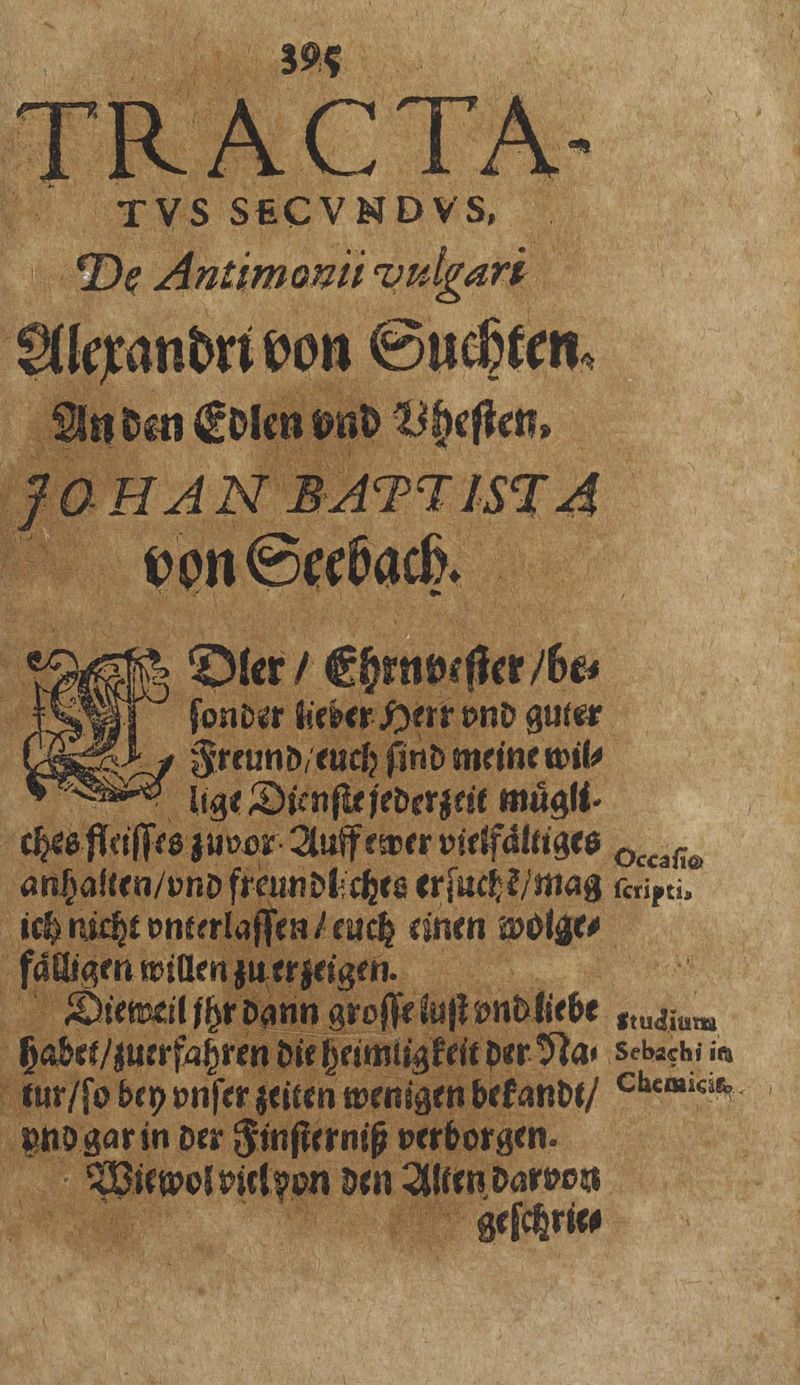 395
TRACTA-
TVS SECVNDVS,
De Antimonii vulgari
Alexandri von Suchten.
An den Edlen vnd Vhesten,
JOHAN BAPTISTA
von Seebach.
EDler / Ehrnvester / be-
sonder lieber Herr vnd guter
Freund / euch sind meine wil-
lige Dienste jederzeit mügli-
ches fleisses zuvor. Auff ewer vielfältiges
anhalten / vnd freundliches ersuchē / mag
ich nicht vnterlassen / euch einen wolge-
fälligen willen zu erzeigen.
Occasio
scripti.
Dieweil jhr dann grosse lust vnd liebe
habet / zuerfahren die heimligkeit der Na-
tur / so bey vnser zeiten wenigen bekandt /
vnd gar in der Finsterniß verborgen.
Studium
Sebachi in
Chemicis.
Wiewol viel von den Alten darvon
geschrie-